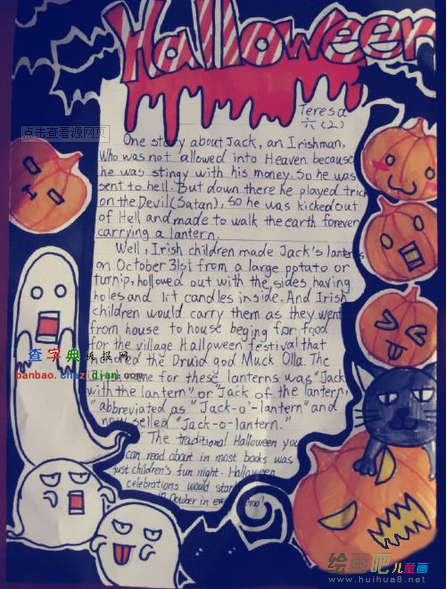 Halloween
Teresa
六(2)
点击查看源网页
One story about Jack, an Irishman,
who was not allowed into Heaven because
he was stingy with his money. So he was
sent to hell. But down there he played trick
on the Devil (Satan), So he was kicked out
of Hell and made to walk the earth forever
carrying a lantern.
Well, Irish children made Jack's lanterns
on October 31st from a large potato or
turnip, hollowed out with the sides having
holes and lit candles inside. And Irish
children would carry them as they went
from house to house beging for food
for the village Halloween festival that
honored the Druid god Muck Olla. The
name for these lanterns was "Jack
with the lantern" or "Jack of the lantern,
"abbreviated as "Jack-o'-lantern" and
now selled "Jack-o-lantern."
The traditional Halloween you
can read about in most books was
just children's fun night. Halloween
celebrations would start
October in
查字典手抄报网
banbao.chazidian.com
绘画吧儿童画
www.huihua8.net